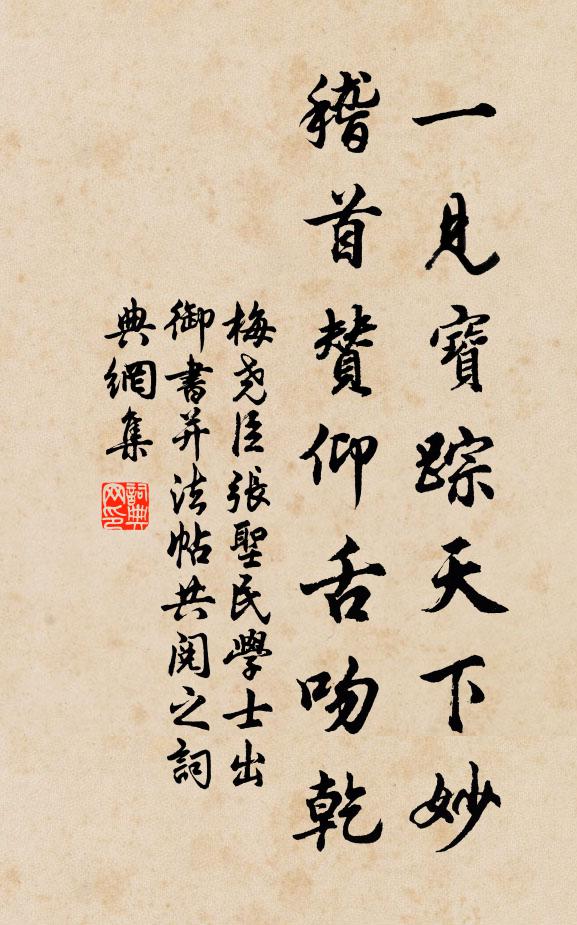 一見寶踪天下妙
稽首賛仰舌吻乾
梅尧臣張聖民學士出
御書并法帖共閱之詞
典網集
詞典
网印